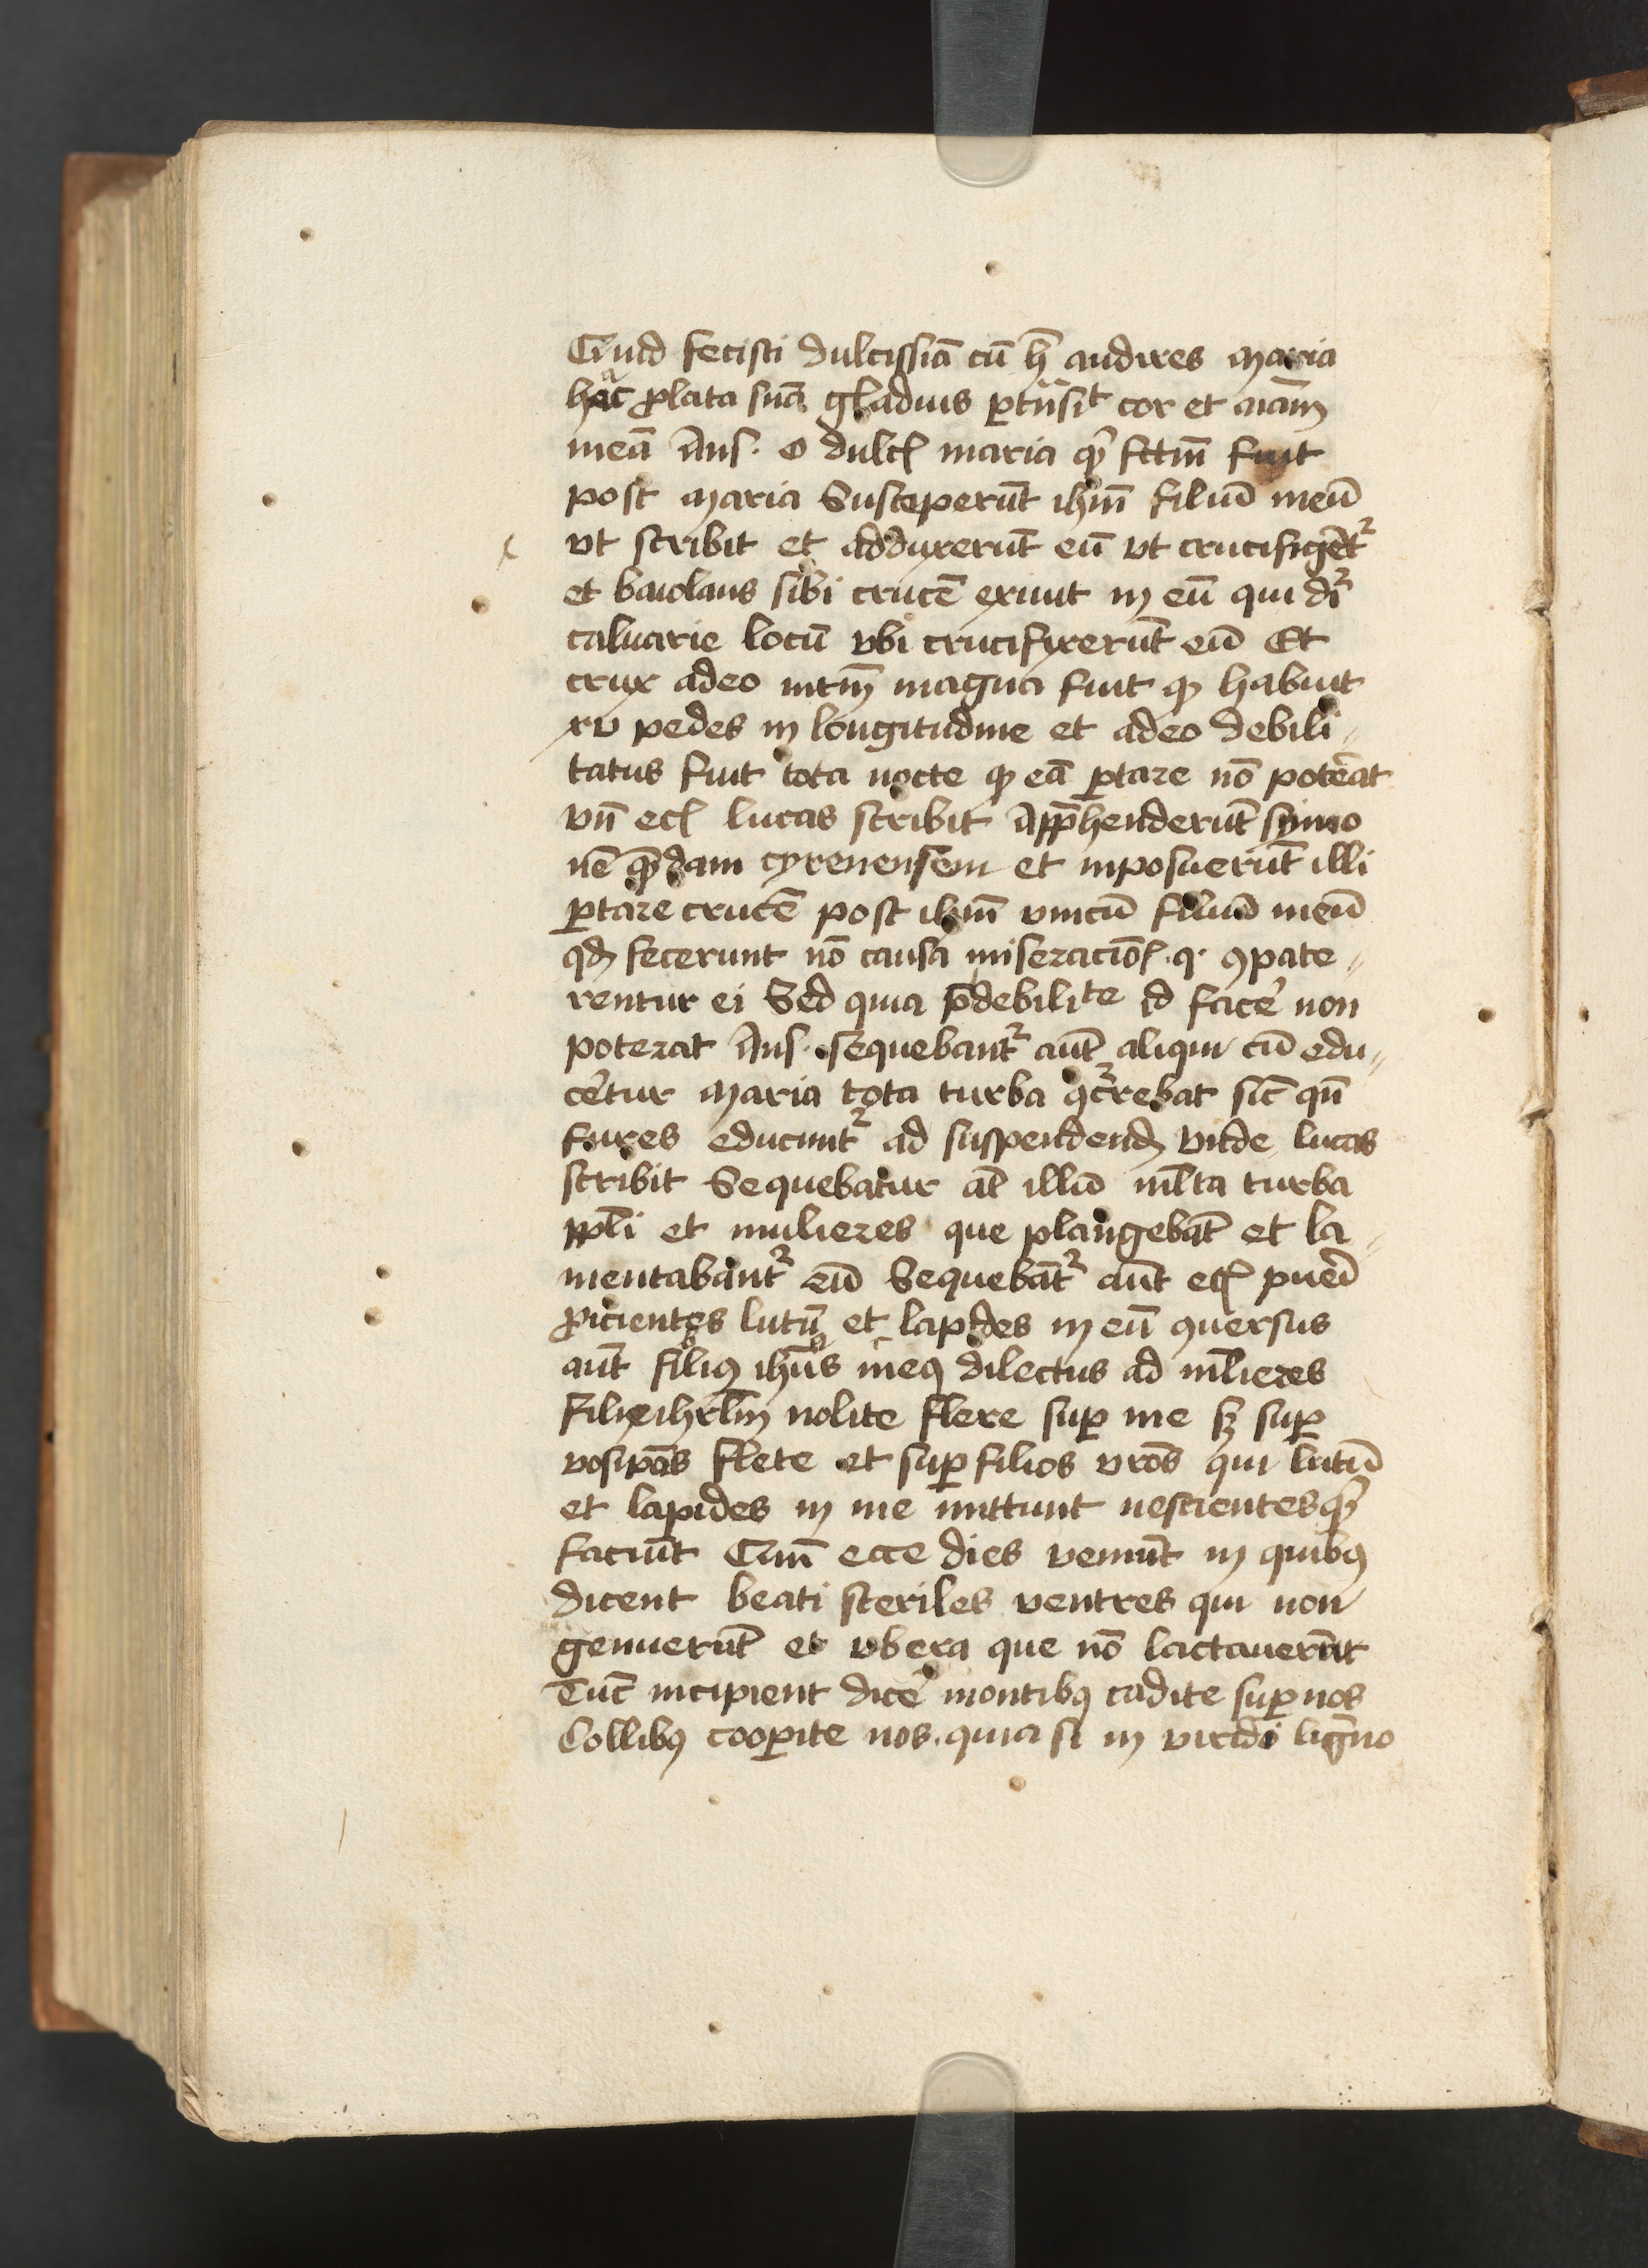 Quid fecisti dulcissīa cū h̄ audires maria
hāc ꝓlata suā gladius ꝑtn̄sit cor et aīam
meā Ans. o dulcꝭ maria qͥd fctm̄ fuit
post maria Susceperūt ihm̄ filiū meū
vt scribit et adduxerūt eū vt crucifigēt᷑
et baiolans sibi crucē exiuit in eū qui dr̄
caluarie locū vbi crucifixerūt eū Et
crux adeo intm̄ magna fuit ꝙ habuit
xv pedes in longitudine et adeo debili„
tatus fuit tota nocte ꝙ eā ꝑtare nō poterat
vn̄ ecꝭ lucas scribit Appͪhenderūt symo
nē quēdam cyrenensem et inposuerūt illi
ꝑtare crucē post ihm̄ vnicū filiū meū
qd̄ fecerunt nō causa miseracīoꝭ. q. ꝯpate„
rentur ei Sed quia p̄ debilite id facē non
poterat Ans. sequebant᷑ aūt aliqui cū edu„
cētur maria tota turba ꝯcͬrebat sic̄ qn̄
fures educunt᷑ ad suspendend̄ vnde lucas
scribit Sequebatur aūt illū ml̄ta turba
ppl̄i et mulieres que plangebāt et la„
mentabant᷑ eū Sequebāt᷑ aūt ecꝭ pueri
ꝓicientes lutū et lapides in eū ꝯuersus
aūt filiꝰ ihūs meꝰ dilectus ad ml̄ieres
Filie ihrl̄m nolite flere suꝑ me sꝫ suꝑ
vosip̄as flete et suꝑ filios vr̄os qui lutū
et lapides in me mittunt nescientes qͥd
faciūt Qm̄ ecce dies veniūt in quibꝰ
dicent beati steriles ventres qui non
genuerūt et vbera que nō lactauerūt
Tūc incipient dicē montibꝰ cadite suꝑ nos
Collibꝰ cooꝑite nos. quia si in viridi ligno